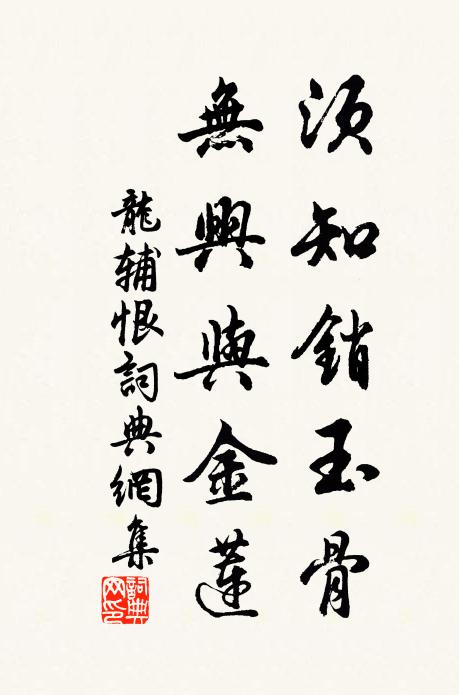 須知銷玉骨
無興與金蓮
龍輔恨詞典網集
詞典網印